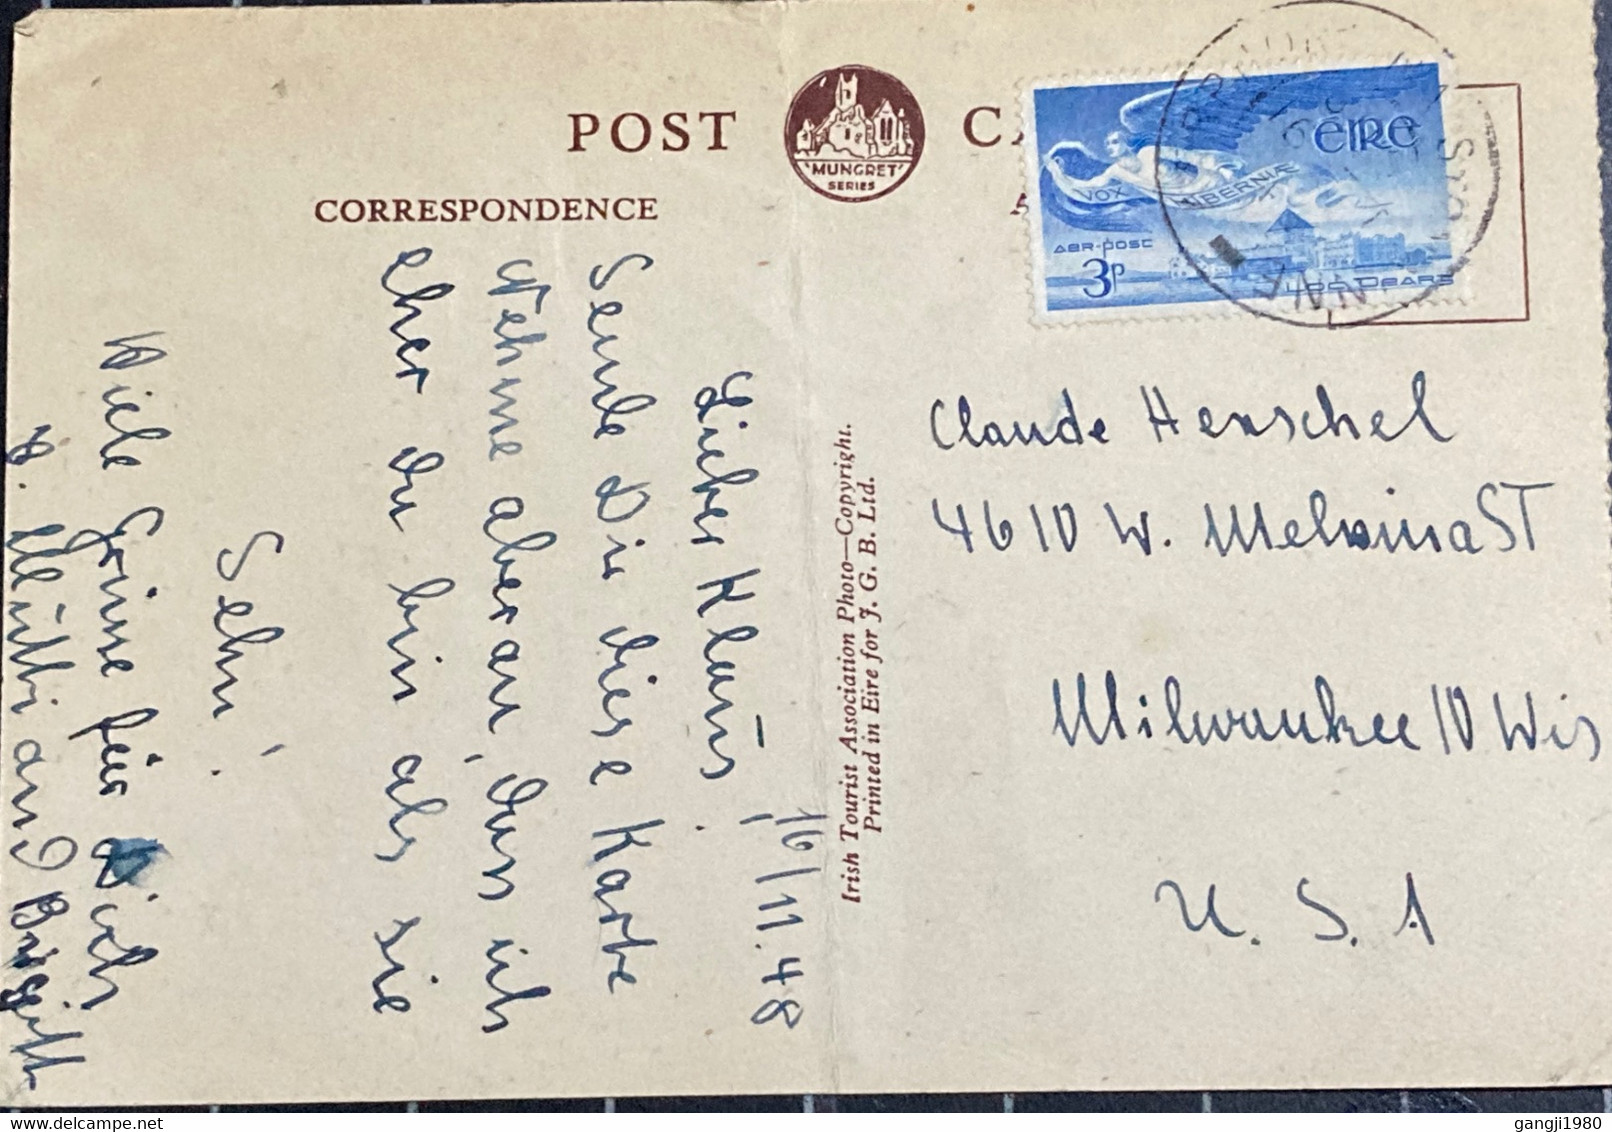 POST
"MUNGRET"
SERIES
CORRESPONDENCE
ÉIRE
VOX
HIBERNIÆ
AER-POST
3P
LOC DEARG
Irish Tourist Association Photo—Copyright.
Printed in Eire for J. G. B. Ltd.
Claude Henschel
4610 W. Melvina ST
Milwaukee 10 Wis
U. S. A
16/11.48
Lieber Klaus,
Sende Dir diese Karte
Nehme aber an, dass ich
eher da bin als sie
Sehr
Viele Grüsse für Dich
Mutti und
gangji1980